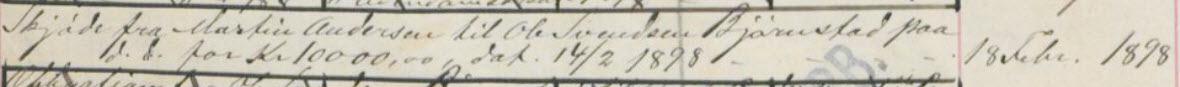 Skjøde fra Martin Andersen til Ole Svendsen Bjørnstad paa
d. d. for Kr 10000,00, dat. 14/2 1898
18 Febr. 1898